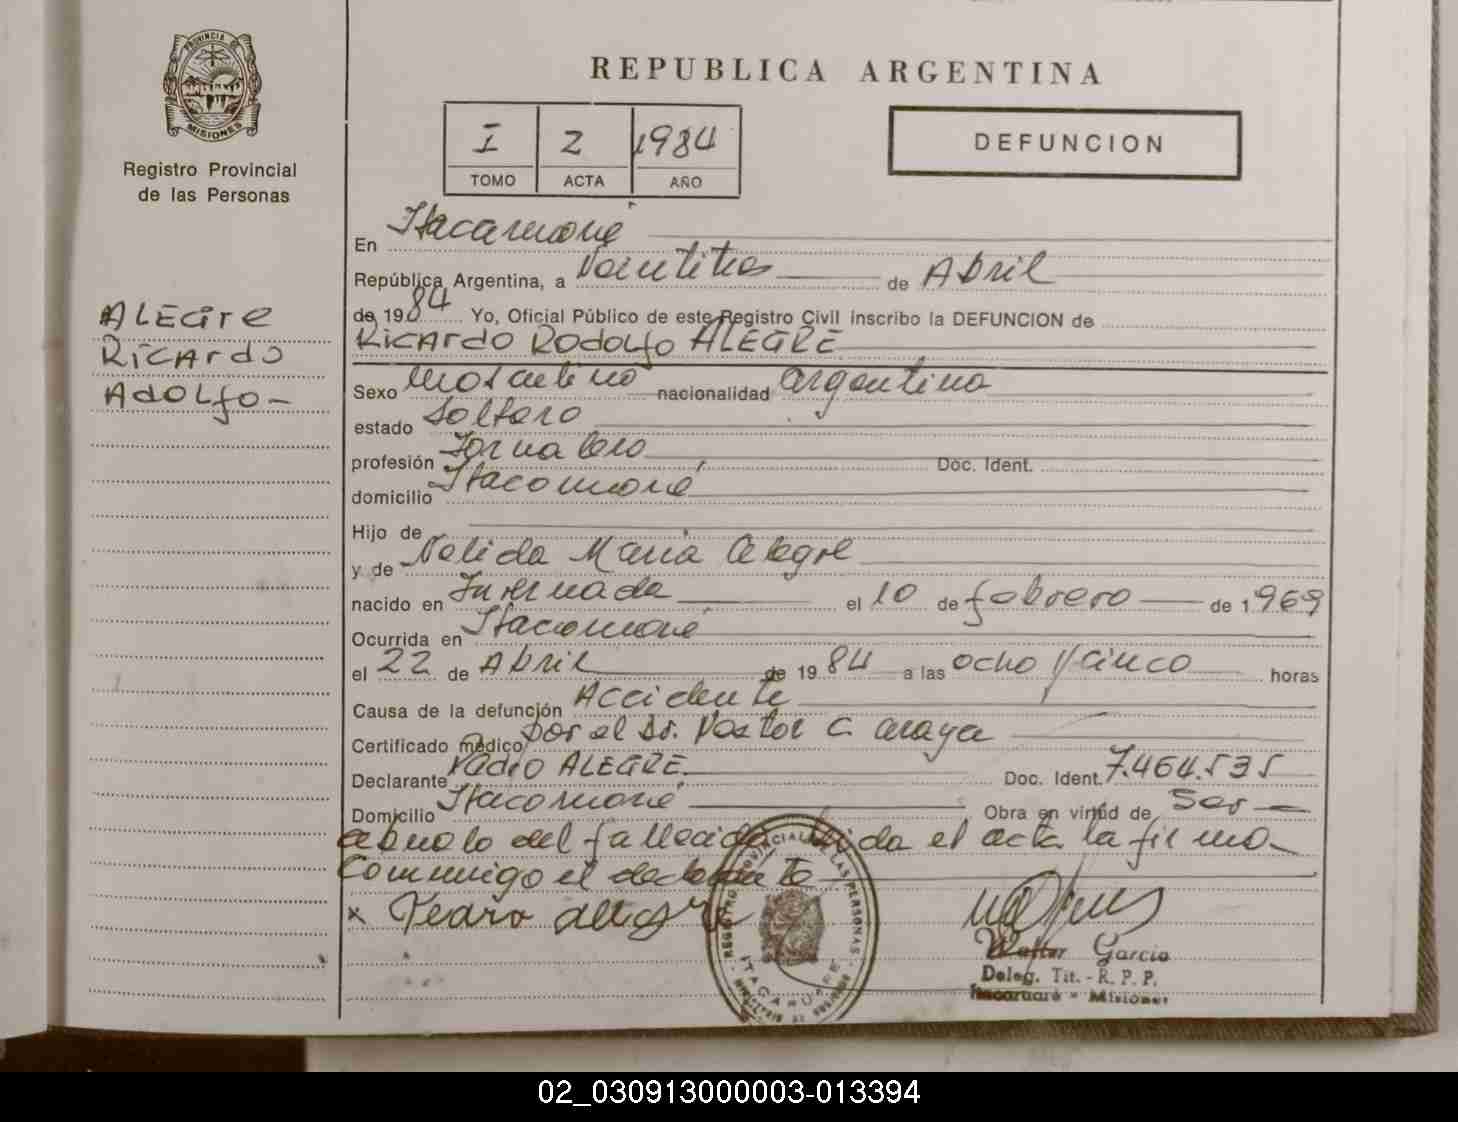 PROVINCIA DE
MISIONES
Registro Provincial
de las Personas
ALEGrE
RICArdo
AdOLfo-
REPUBLICA ARGENTINA
I 2 1984
TOMO ACTA AÑO
DEFUNCION
En Itacaruaré
República Argentina, a Veintitres de Abril
de 1984 Yo, Oficial Público de este Registro Civil inscribo la DEFUNCION de
RICArdO RodOLfo ALEGRE
Sexo masculino nacionalidad argentina
estado Soltero
profesión Jornalero Doc. Ident.
domicilio Itacaruaré
Hijo de
y de Nelida Maria Alegre
nacido en Invernada el 10 de febrero de 1969
Ocurrida en Itacaruaré
el 22 de Abril de 1984 a las ocho y cinco horas
Causa de la defunción Accidente
Certificado médico por el Dr. C. araya
Declarante Pedro ALEGRE Doc. Ident. 7.464.535
Domicilio Itacaruaré Obra en virtud de Ser
abuelo del fallecido leida el acta la firma
Conmigo el declarante
x Pedro alegre
REGISTRO PROVINCIAL DE LAS PERSONAS
ITACARUARE
Walter Garcia
Deleg. Tit. - R. P. P.
Itacaruaré - Misiones
02_030913000003-013394